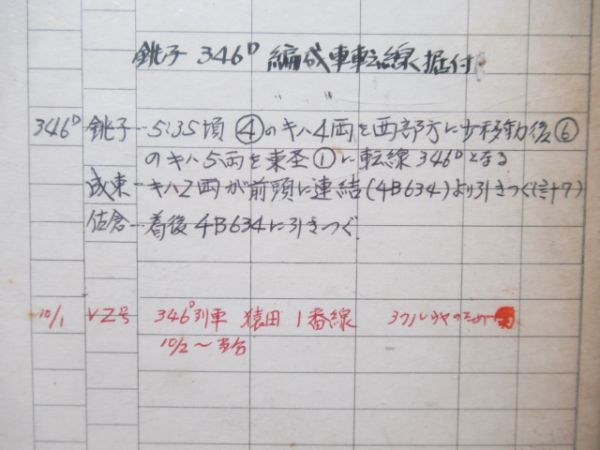 銚子 346D 編成車転線据付
346D 銚子-5:35頃 ④のキハ4両を西部方に少移動後⑥
のキハ5両を東至①に転線346Dとなる
成東-キハ2両が前頭に連結(4B634)より引きつぐ(計7)
佐倉-着後4B634に引きつぐ
10/1 VZ号 346D列車 猿田 1番線
10/2〜